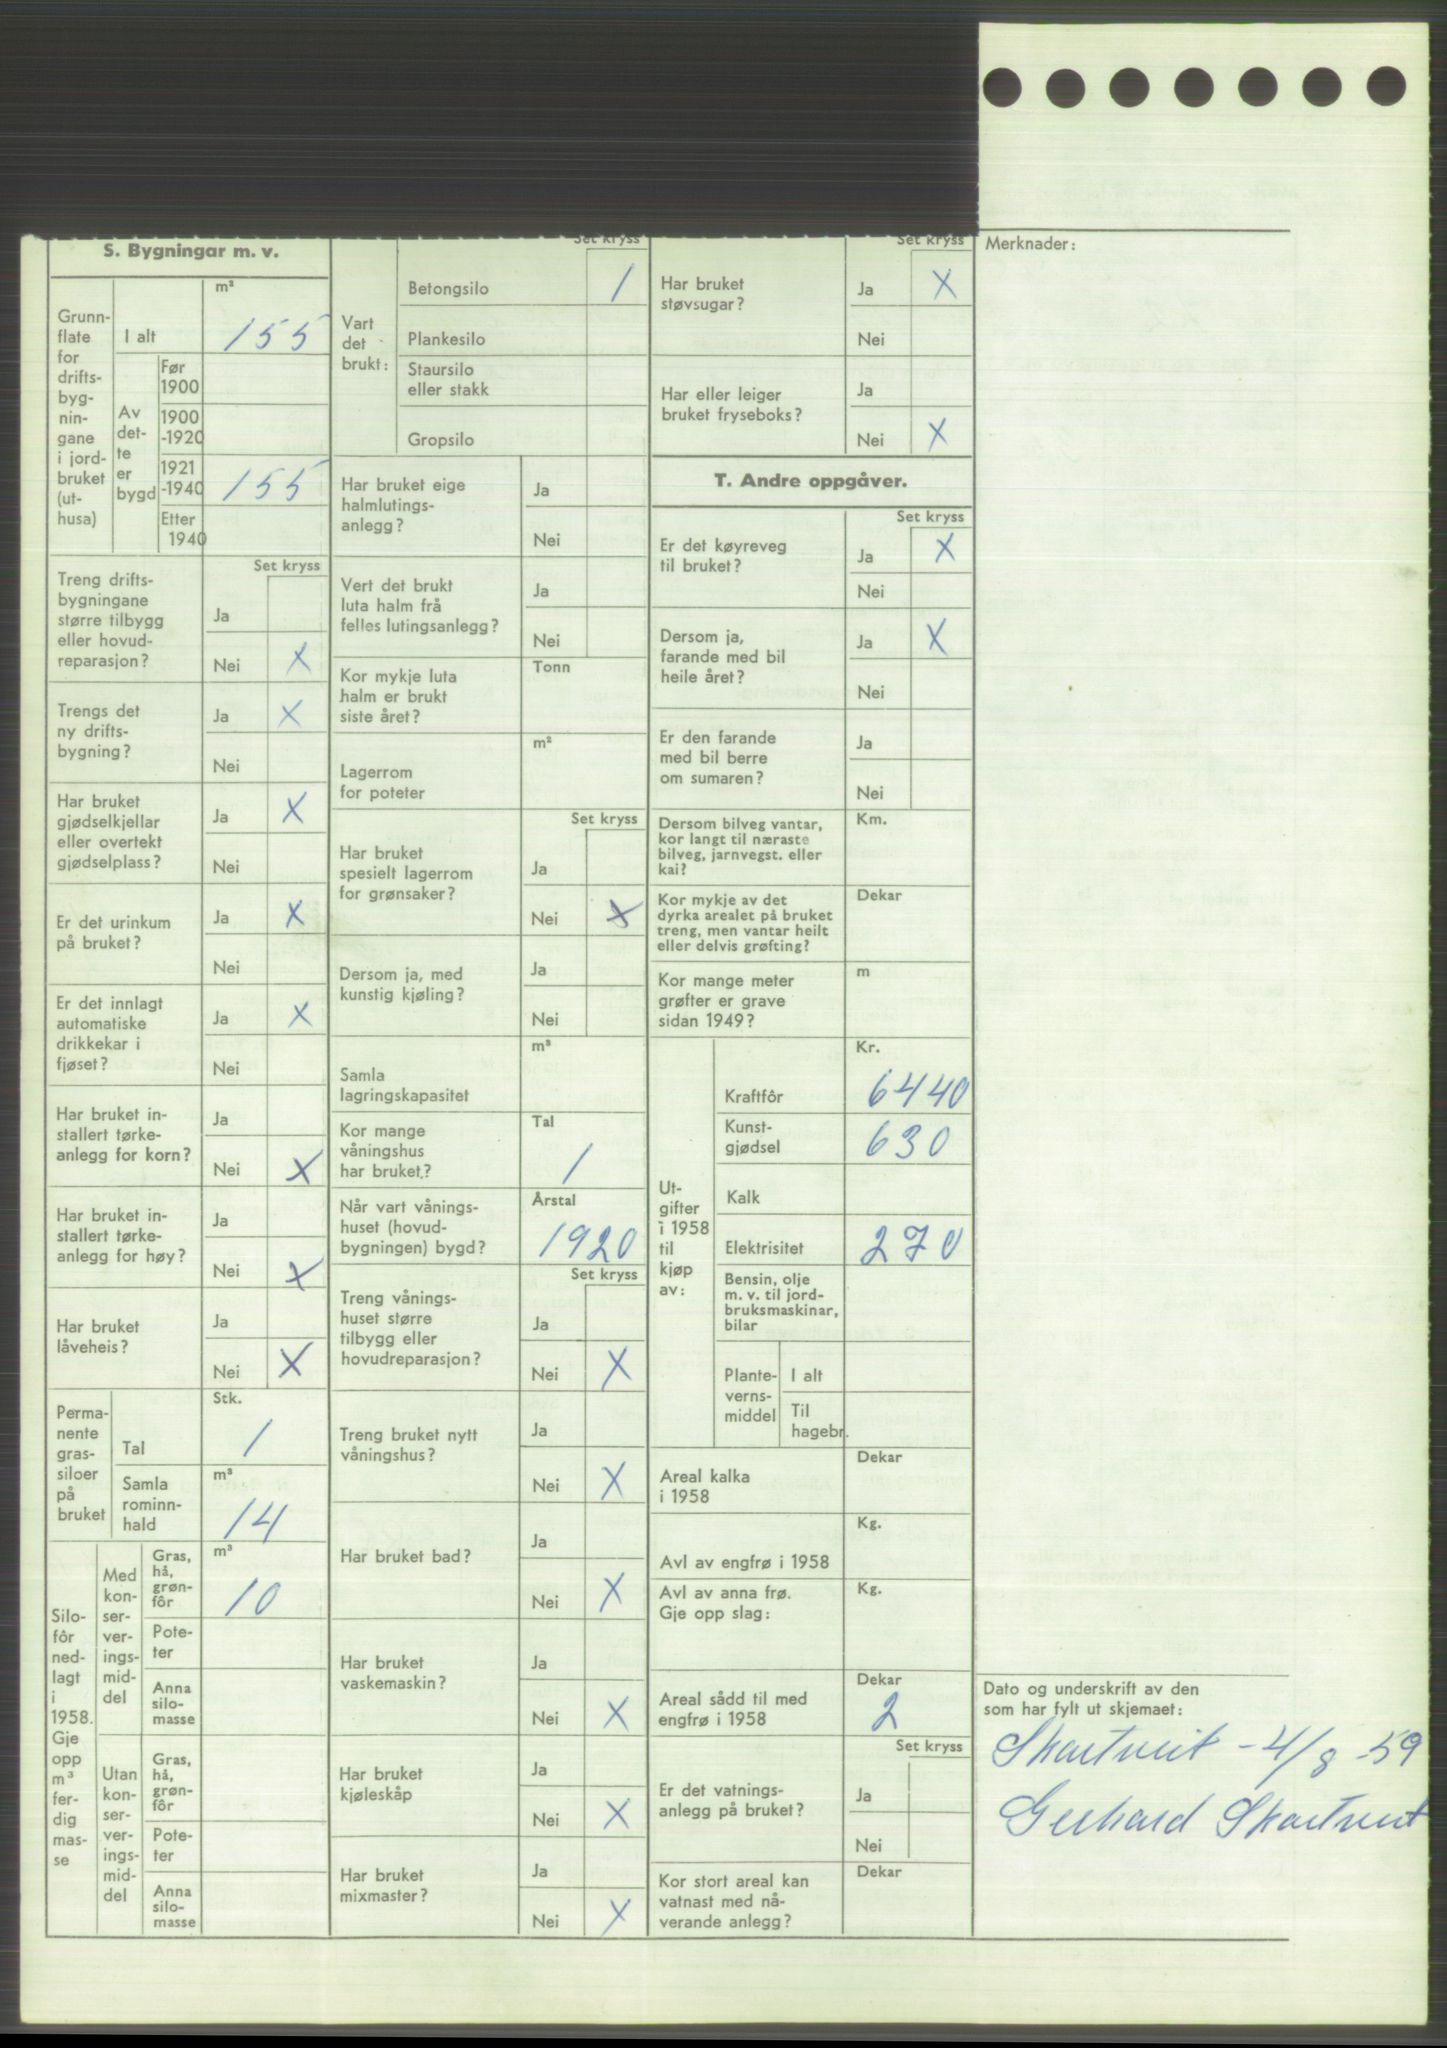 S. Bygningar m. v.
Grunn-
flate
for
drifts-
byg-
nin-
gane
i jord-
bruket
(ut-
husa)
m²
I alt 155
Av
det-
te
er
bygd
Før
1900
1900
-1920
1921
-1940 155
Etter
1940
Set kryss
Treng drifts-
bygningane
større tilbygg
eller hovud-
reparasjon?
Ja
Nei X
Trengs det
ny drifts-
bygning?
Ja X
Nei
Har bruket
gjødselkjellar
eller overtekt
gjødselplass?
Ja X
Nei
Er det urinkum
på bruket?
Ja X
Nei
Er det innlagt
automatiske
drikkekar i
fjøset?
Ja X
Nei
Har bruket in-
stallert tørke-
anlegg for korn?
Ja
Nei X
Har bruket in-
stallert tørke-
anlegg for høy?
Ja
Nei X
Har bruket
låveheis?
Ja
Nei X
Perma-
nente
gras-
siloer
på
bruket
Stk.
Tal 1
Samla
rominn-
hald
m³
14
Silo-
fôr
ned-
lagt
i
1958.
Gje
opp
m³
fer-
dig
mas-
se
Med
kon-
ser-
ver-
ings-
mid-
del
Gras,
hå,
grøn-
fôr
m³
10
Pote-
ter
Anna
silo-
masse
Utan
kon-
ser-
ver-
ings-
mid-
del
Gras,
hå,
grøn-
fôr
Pote-
ter
Anna
silo-
masse
Set kryss
Vart
det
brukt:
Betongsilo 1
Plankesilo
Staursilo
eller stakk
Gropsilo
Har bruket eige
halmlutings-
anlegg?
Ja
Nei
Vert det brukt
luta halm frå
felles lutingsanlegg?
Ja
Nei
Kor mykje luta
halm er brukt
siste året?
Tonn
Lagerrom
for poteter
m²
Set kryss
Har bruket
spesielt lagerrom
for grønsaker?
Ja
Nei X
Dersom ja, med
kunstig kjøling?
Ja
Nei
Samla
lagringskapasitet
m³
Kor mange
våningshus
har bruket?
Tal
1
Når vart vånings-
huset (hovud-
bygningen) bygd?
Årstal
1920
Set kryss
Treng vånings-
huset større
tilbygg eller
hovudreparasjon?
Ja
Nei X
Treng bruket nytt
våningshus?
Ja
Nei X
Har bruket bad?
Ja
Nei X
Har bruket
vaskemaskin?
Ja
Nei X
Har bruket
kjøleskåp
Ja
Nei X
Har bruket
mixmaster?
Ja
Nei X
Set kryss
Har bruket
støvsugar?
Ja X
Nei
Har eller leiger
bruket fryseboks?
Ja
Nei X
T. Andre oppgåver.
Set kryss
Er det køyreveg
til bruket?
Ja X
Nei
Dersom ja,
farande med bil
heile året?
Ja X
Nei
Er den farande
med bil berre
om sumaren?
Ja
Nei
Dersom bilveg vantar,
kor langt til næraste
bilveg, jarnvegst. eller
kai?
Km.
Kor mykje av det
dyrka arealet på bruket
treng, men vantar heilt
eller delvis grøfting?
Dekar
Kor mange meter
grøfter er grave
sidan 1949?
m
Ut-
gifter
i 1958
til
kjøp
av:
Kr.
Kraftfôr 6440
Kunst-
gjødsel 630
Kalk
Elektrisitet 270
Bensin, olje
m. v. til jord-
bruksmaskinar,
bilar
Plante-
verns-
middel
I alt
Til
hagebr.
Areal kalka
i 1958
Dekar
Avl av engfrø i 1958
Kg.
Avl av anna frø.
Gje opp slag:
Kg.
Areal sådd til med
engfrø i 1958
Dekar
2
Set kryss
Er det vatnings-
anlegg på bruket?
Ja
Nei
Kor stort areal kan
vatnast med nå-
verande anlegg?
Dekar
Merknader:
Dato og underskrift av den
som har fylt ut skjemaet:
Skartveit - 4/8 -59
Gerhard Skartveit